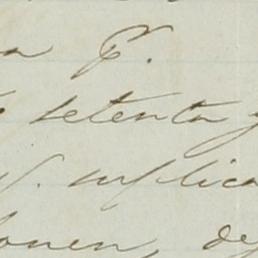 a P.
setenta y
S. suplica
onen, de